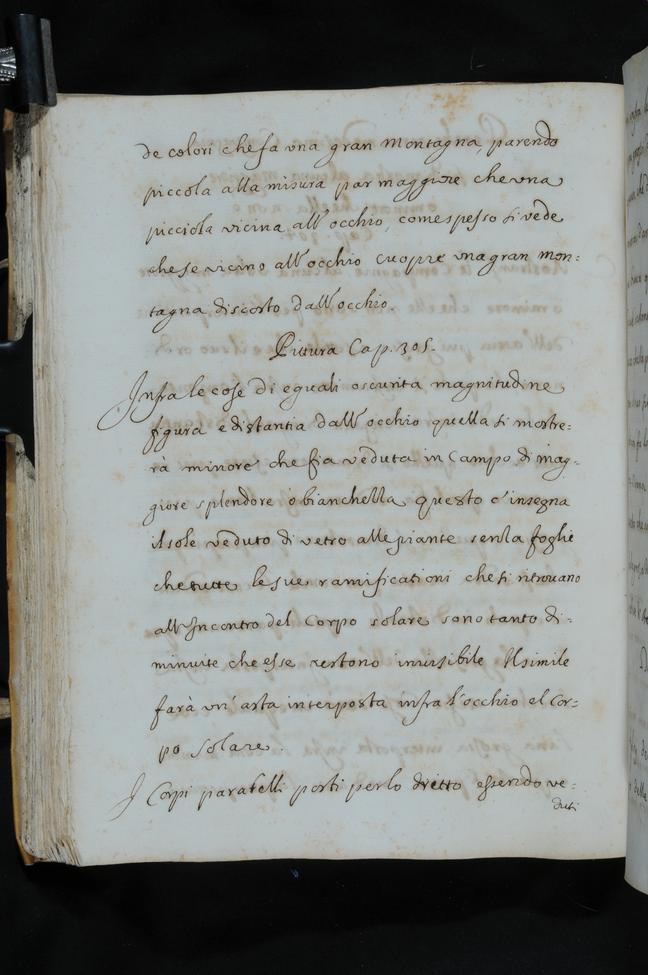 de colori che fa una gran montagna, parendo
piccola alla misura par maggiore che una
picciola vicina all'occhio, come spesso si vede
che se vicino all'occhio cuopre una gran mon:
tagna discosto dall'occhio.
Pittura Cap. 305.
Infra le cose di eguali oscurità magnitudine
figura e distantia dall'occhio quella si mostre:
rà minore che fia veduta in Campo di mag:
giore splendore o bianchezza questo c'insegna
il sole veduto di vetro alle piante senza foglie
che tutte le sue ramificationi che si ritrovano
all'Incontro del Corpo solare sono tanto di:
minuite che esse restono invisibile Il simile
farà un'asta interposta infra l'occhio el Cor:
po solare.
I Corpi paralelli posti per lo dretto essendo ve:
duti